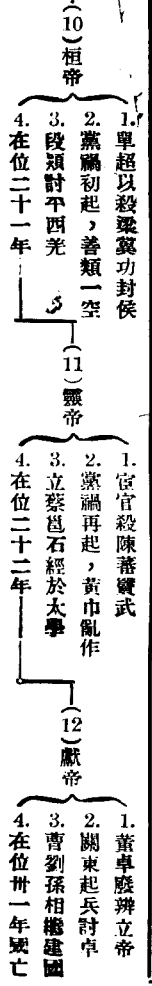 (10)桓帝
1.單超以殺梁冀功封侯
2.黨禍初起，善類一空
3.段熲討平西羌
4.在位二十一年
(11)靈帝
1.宦官殺陳蕃竇武
2.黨禍再起，黃巾亂作
3.立蔡邕石經於太學
4.在位二十二年
(12)獻帝
1.董卓廢辨立帝
2.關東起兵討卓
3.曹劉孫相繼建國
4.在位卅一年漢亡